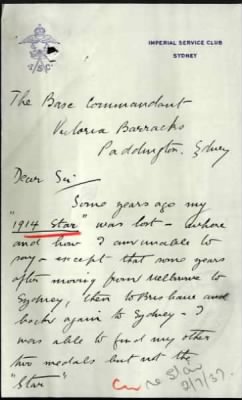 IMPERIAL SERVICE CLUB
SYDNEY
The Base Commandant
Victoria Barracks
Paddington. Sydney
Dear Sir
Some years ago my
"1914 Star" was lost - where
and how I am unable to
say - except that some years
after moving from Melbourne to
Sydney, then to Brisbane and
back again to Sydney - I
was able to find my other
two medals but not the
"Star"
re Star
2/7/37.